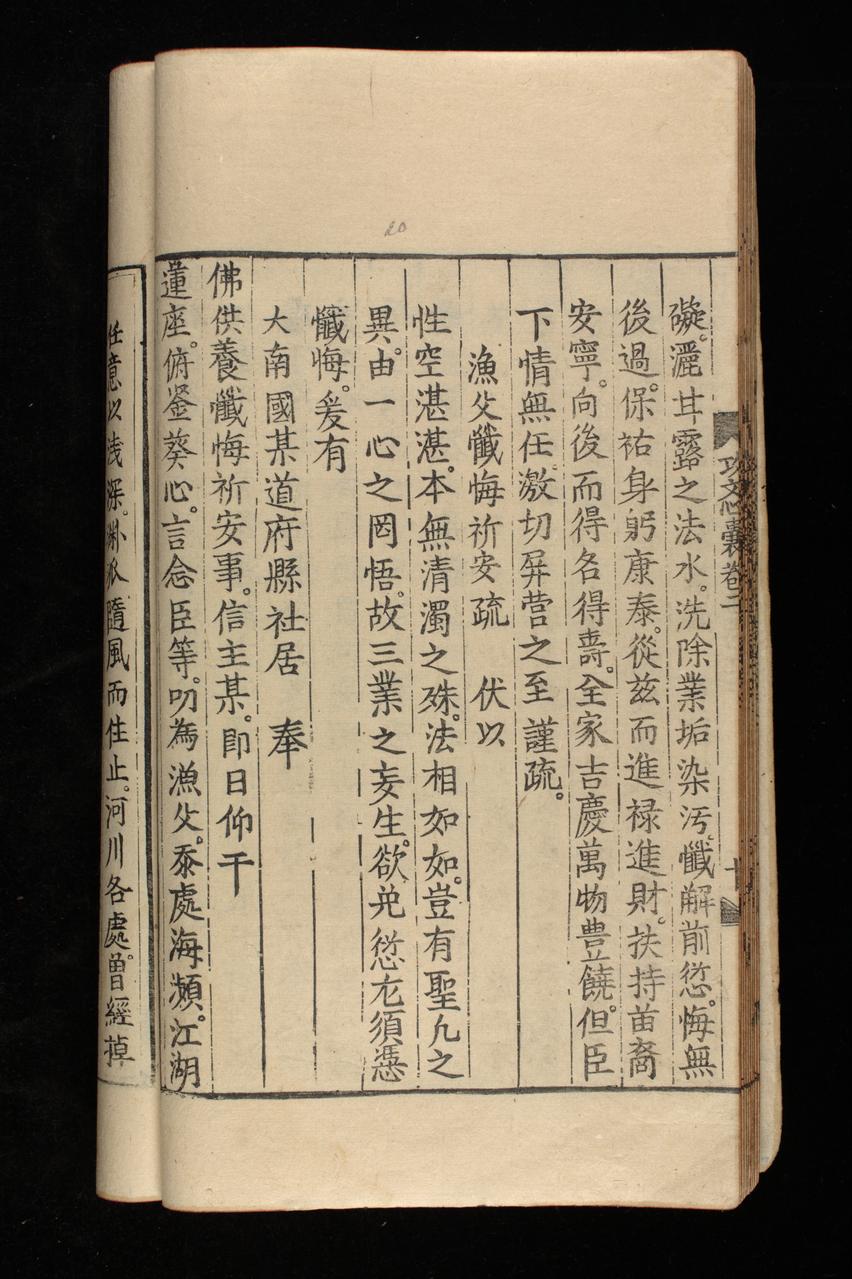 礙。灑甘露之法水。洗除業垢染汚。懺解前愆。悔無
後過。保祐身躬康泰。從兹而進祿進財。扶持苗裔
安寧。向後而得名得壽。全家吉慶萬物豊饒。但臣
下情無任激切屏营之至謹疏。
漁父懺悔祈安疏 伏以
性空湛湛。本無清濁之殊。法相如如。豈有聖凡之
異。由一心之罔悟。故三業之妄生。欲免愆尤須憑
懺悔。爰有
大南國某道府縣社居 奉
佛供養懺悔祈安事。信主某。即日仰干
蓮座。俯鉴葵心。言念臣等。叨為漁父。忝處海瀕。江湖
任意以浅深。派隨風而住止。河川各處。曽經掉
攻文心囊卷二
十
20